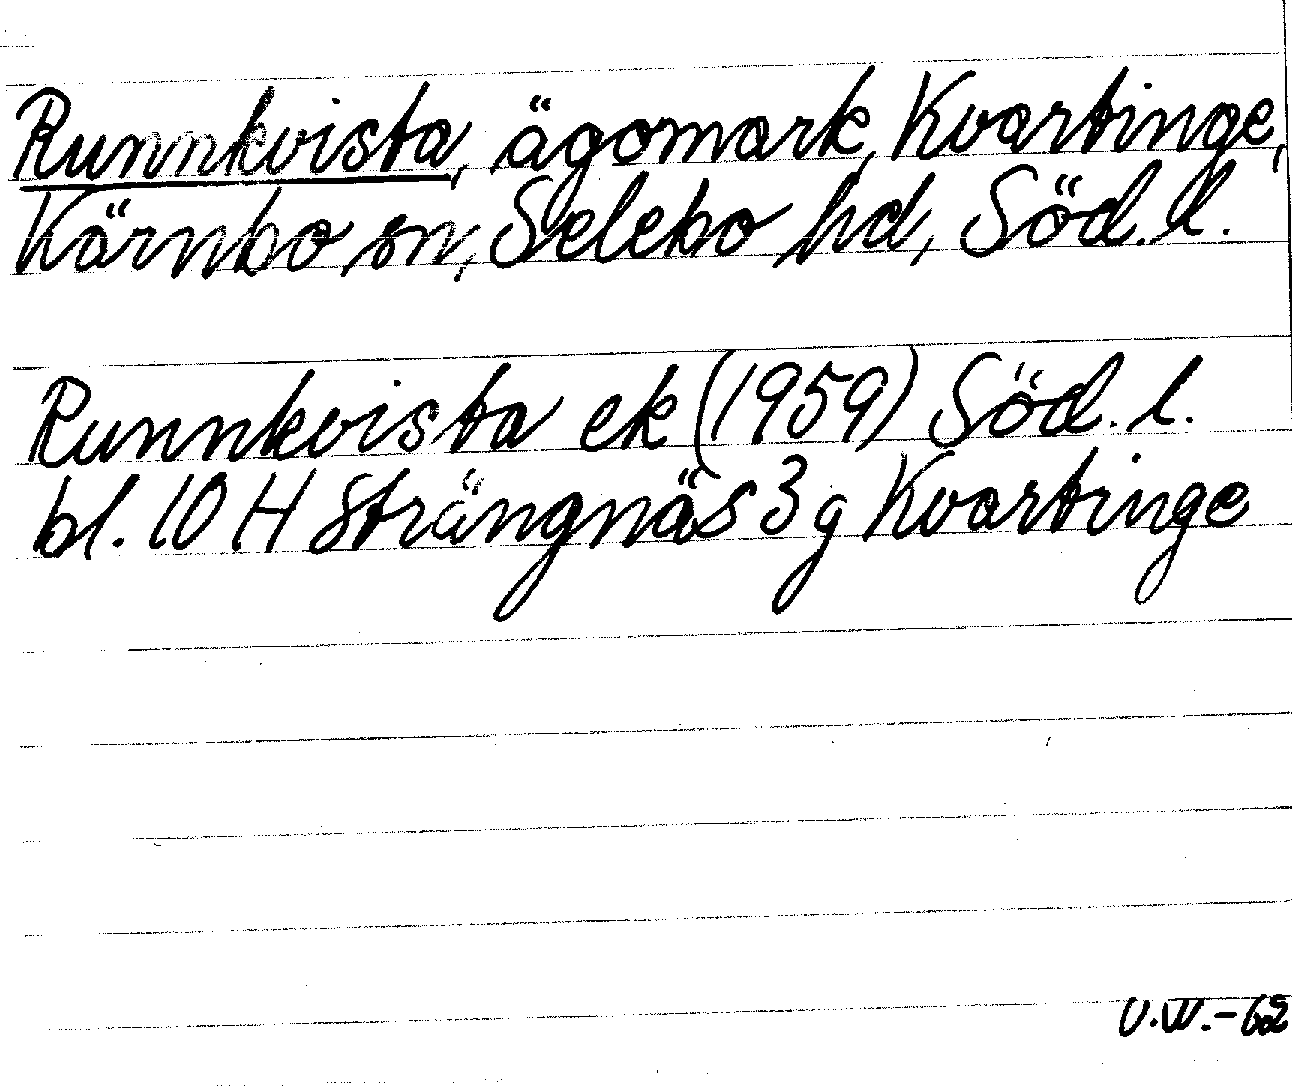 Runnkvista, ägomark, Kvartinge,
Kärnbo sn, Selebo hd, Söd. l.
Runnkvista ek (1959) Söd. l.
bl. 10 H Strängnäs 3 g Kvartinge
U.W.-62